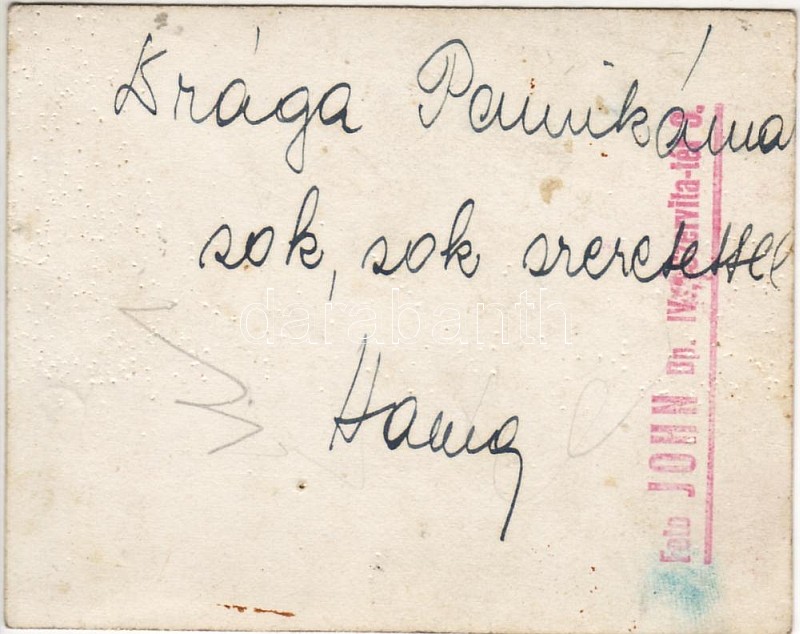 Drága Pannikáma
sok, sok szeretettel
Hanna
Foto JOHN Bp. IV., Szervita-tér 3.
darabanth